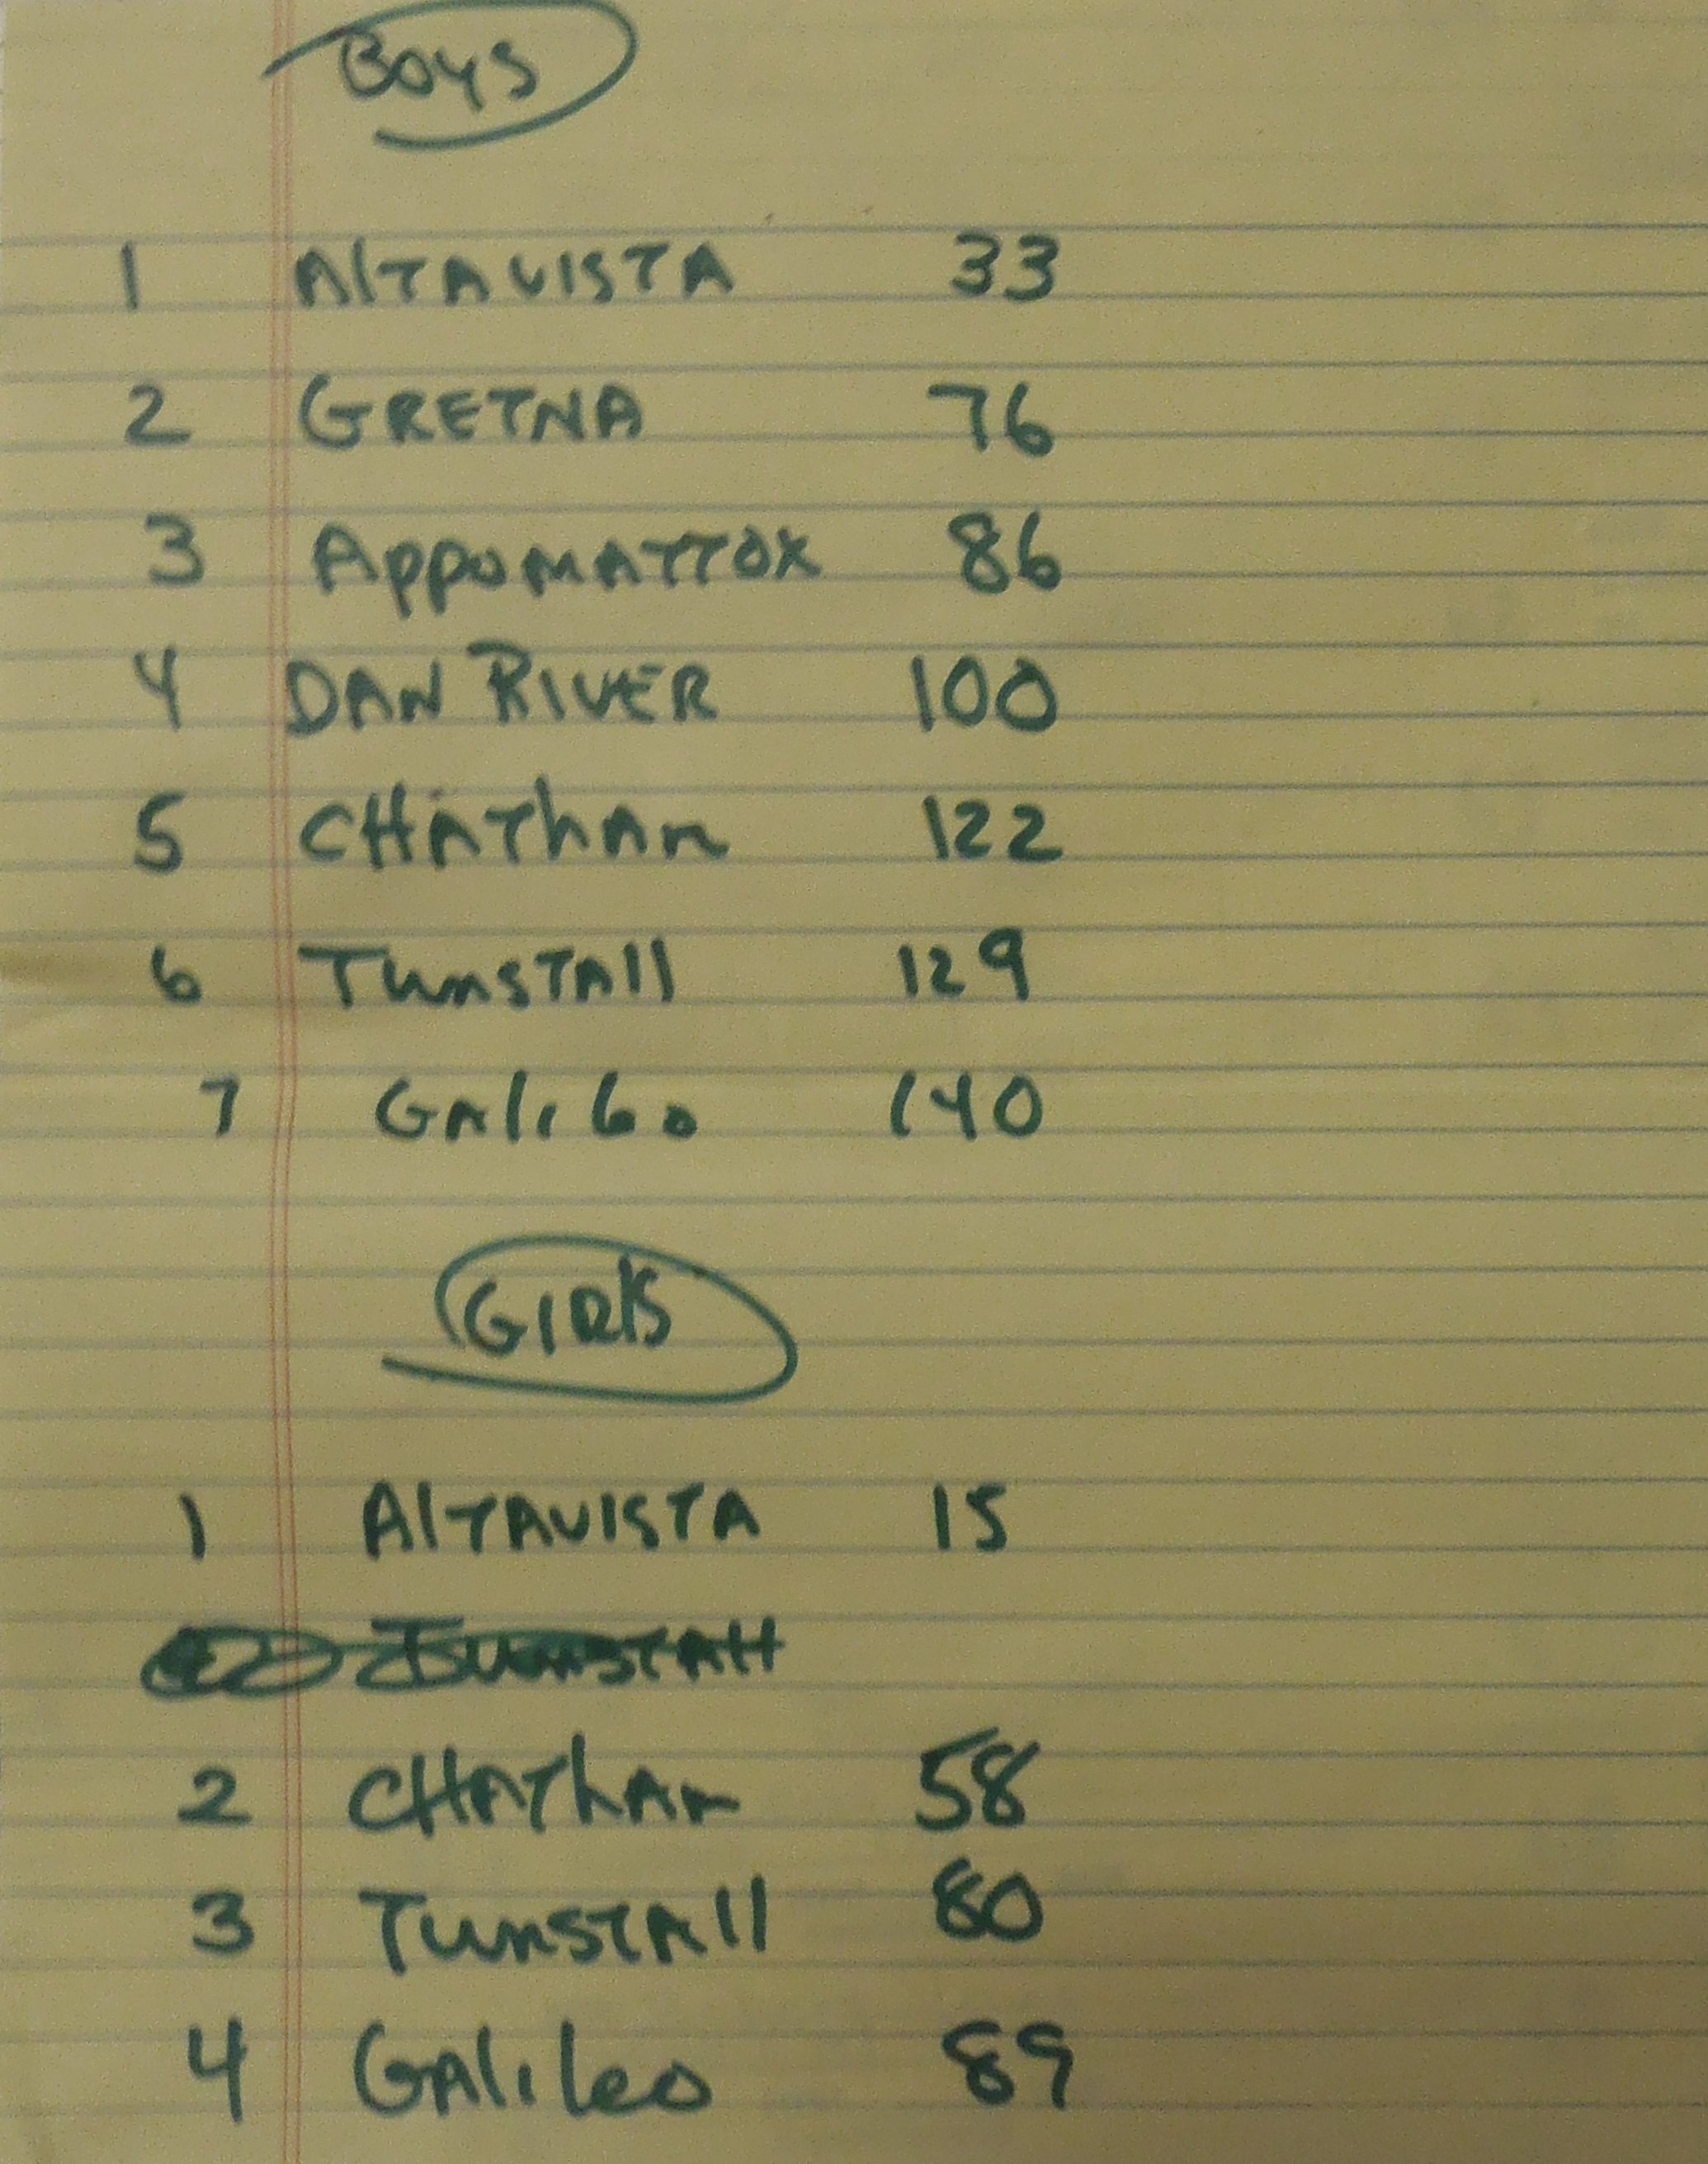 Boys
1 AlTAVISTA 33
2 GRETNA 76
3 APPOMATTOX 86
4 DAN RIVER 100
5 CHATham 122
6 TunsTAll 129
7 GAlileo 140
GIRls
1 AlTAVISTA 15
TunsTAll
2 CHATham 58
3 TunsTAll 80
4 GAlileo 89